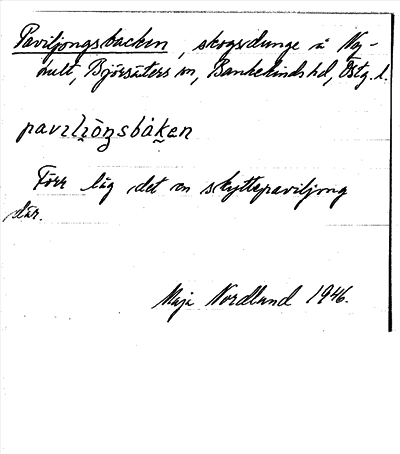 Paviljongsbacken, skogsdunge å Ny-
hult, Björsäters sn, Bankekinds hd, Östg. l.
paviljɷŋsbaken
Förr låg det en skyttepaviljong
där.
Maja Nordlund 1946.